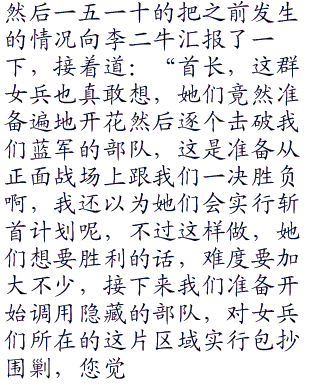 然后一五一十的把之前发生
的情况向李二牛汇报了一
下，接着道：“首长，这群
女兵也真敢想，她们竟然准
备遍地开花然后逐个击破我
们蓝军的部队，这是准备从
正面战场上跟我们一决胜负
啊，我还以为她们会实行斩
首计划呢，不过这样做，她
们想要胜利的话，难度要加
大不少，接下来我们准备开
始调用隐藏的部队，对女兵
们所在的这片区域实行包抄
围剿，您觉